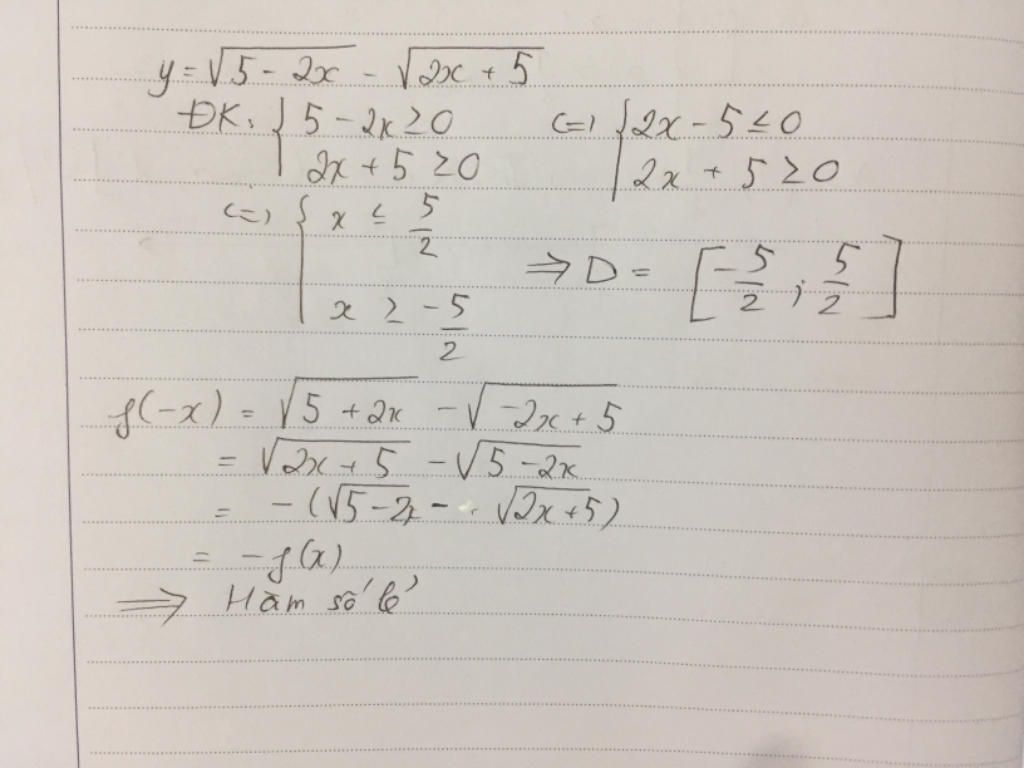 y = √(5 - 2x) - √(2x + 5)
ĐK: { 5 - 2x ≥ 0 (=) { 2x - 5 ≤ 0
2x + 5 ≥ 0 2x + 5 ≥ 0
(=) { x ≤ 5/2
x ≥ -5/2 => D = [-5/2 ; 5/2]
f(-x) = √(5 + 2x) - √(-2x + 5)
= √(2x + 5) - √(5 - 2x)
= - (√(5 - 2x) - √(2x + 5))
= - f(x)
=> Hàm số lẻ